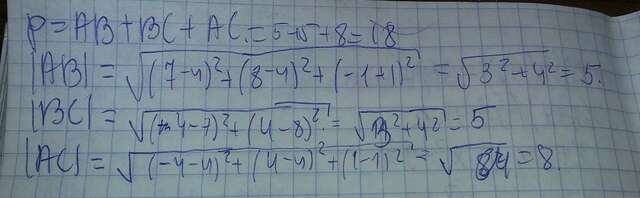 P = AB + BC + AC = 5+5+8=18
|AB| = √((7-4)²+(8-4)²+(-1+1)²) = √(3²+4²) = 5.
|BC| = √((4-7)²+(4-8)²) = √(3²+4²) = 5
|AC| = √((-4-4)²+(4-4)²+(1-1)²) = √64 = 8.